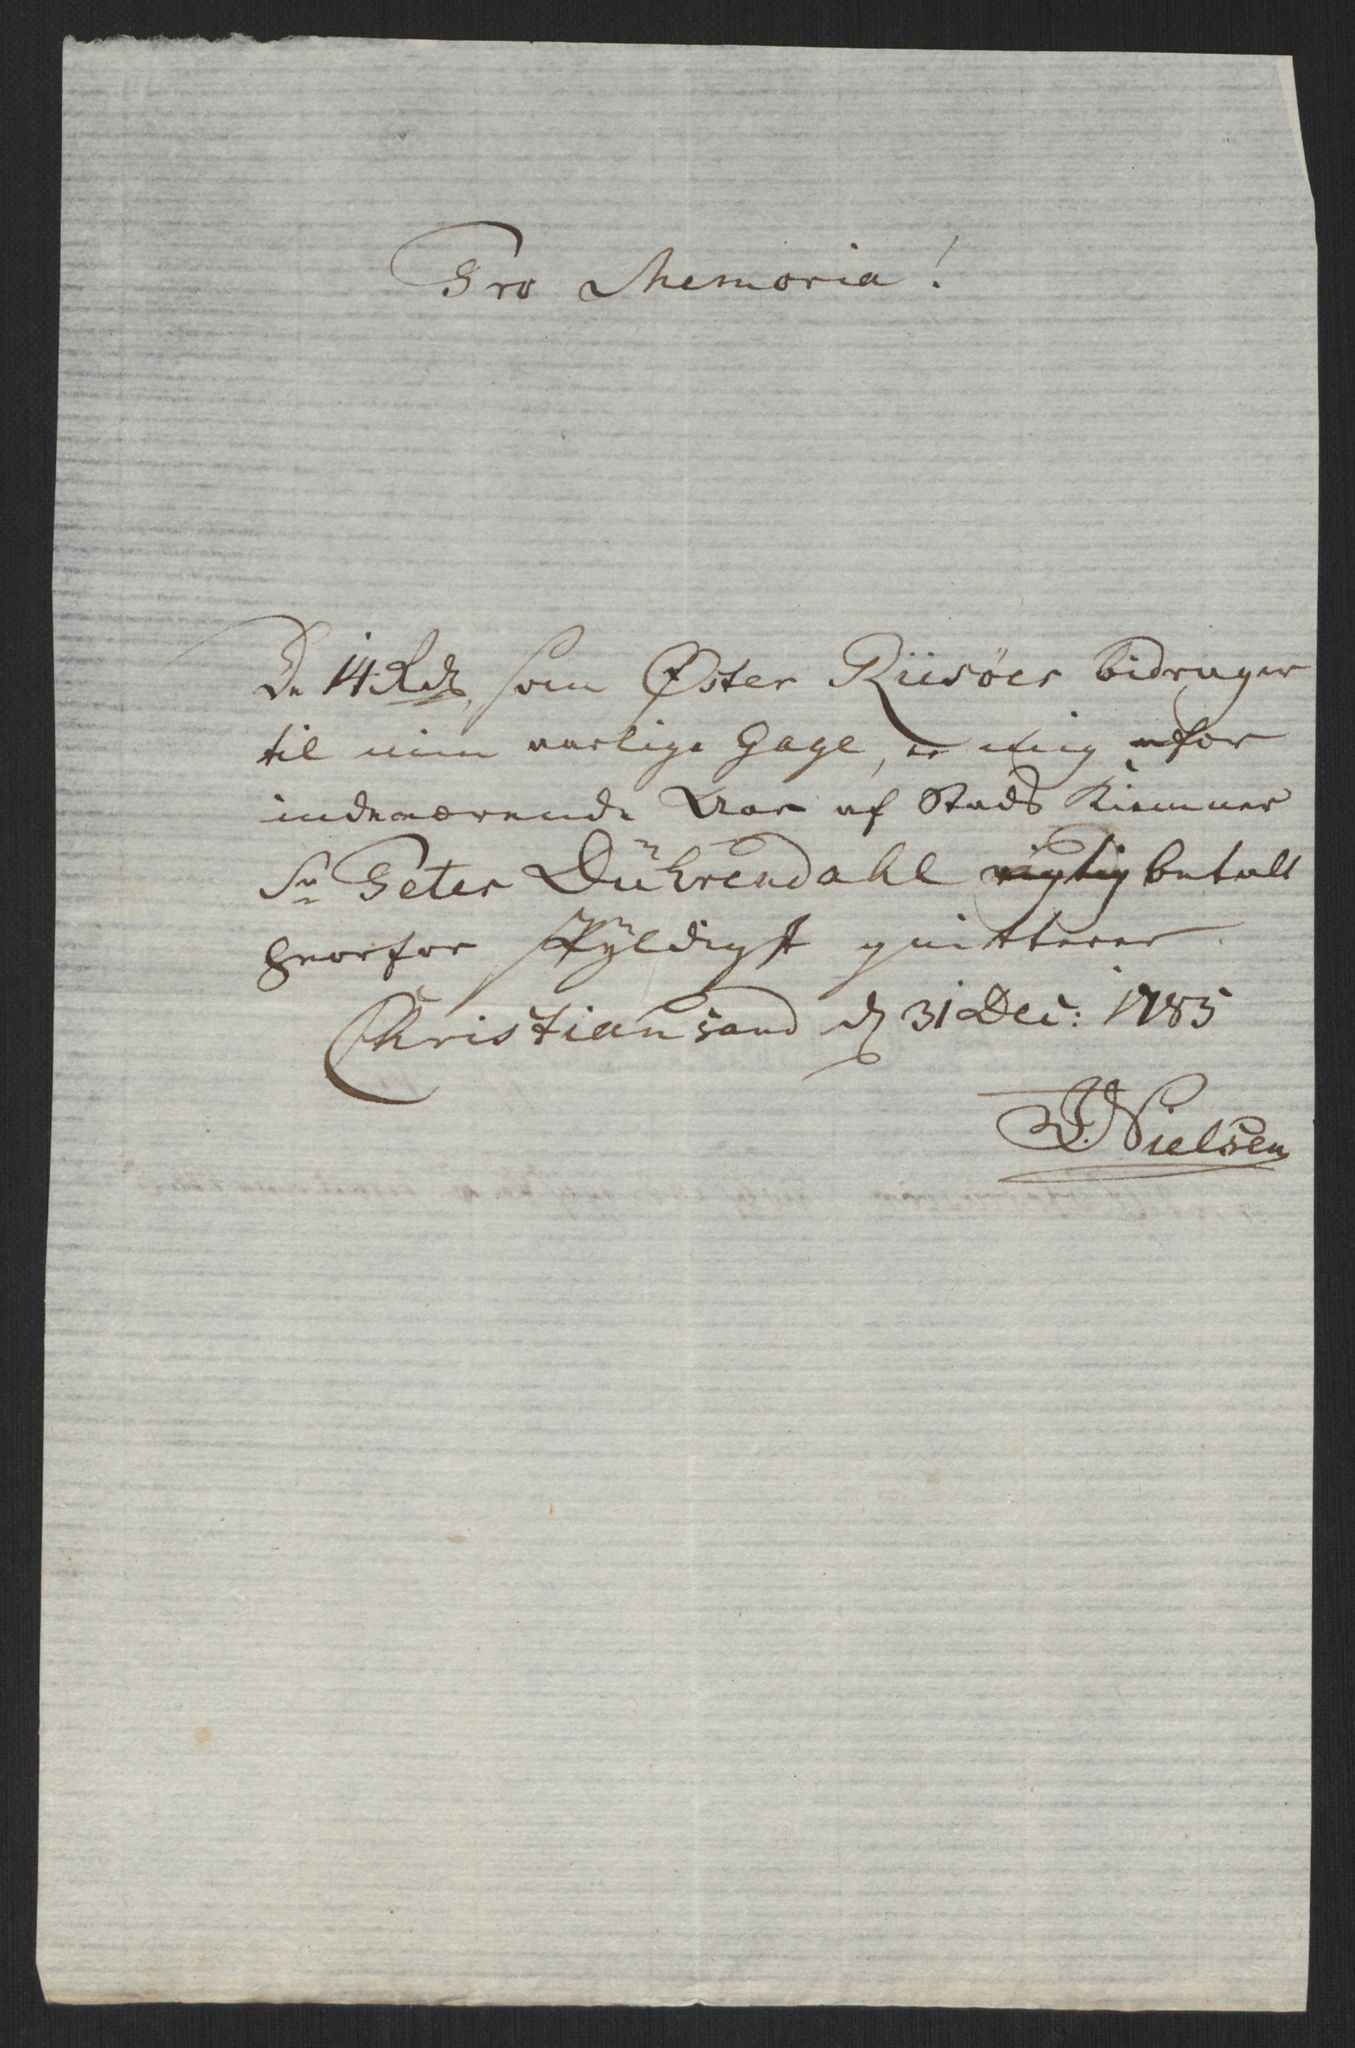 Pro Memoria!
De 14 Rdr, som Øster Riisöer bidrager
til min aarlige Gage, er mig for
indeværende Aar af Stads Kiemner
Sr Peter Dührendahl rigtig betalt
hvorfor skÿldigst quitterer.
Christiansand d 31 Dec: 1785
Nielsen